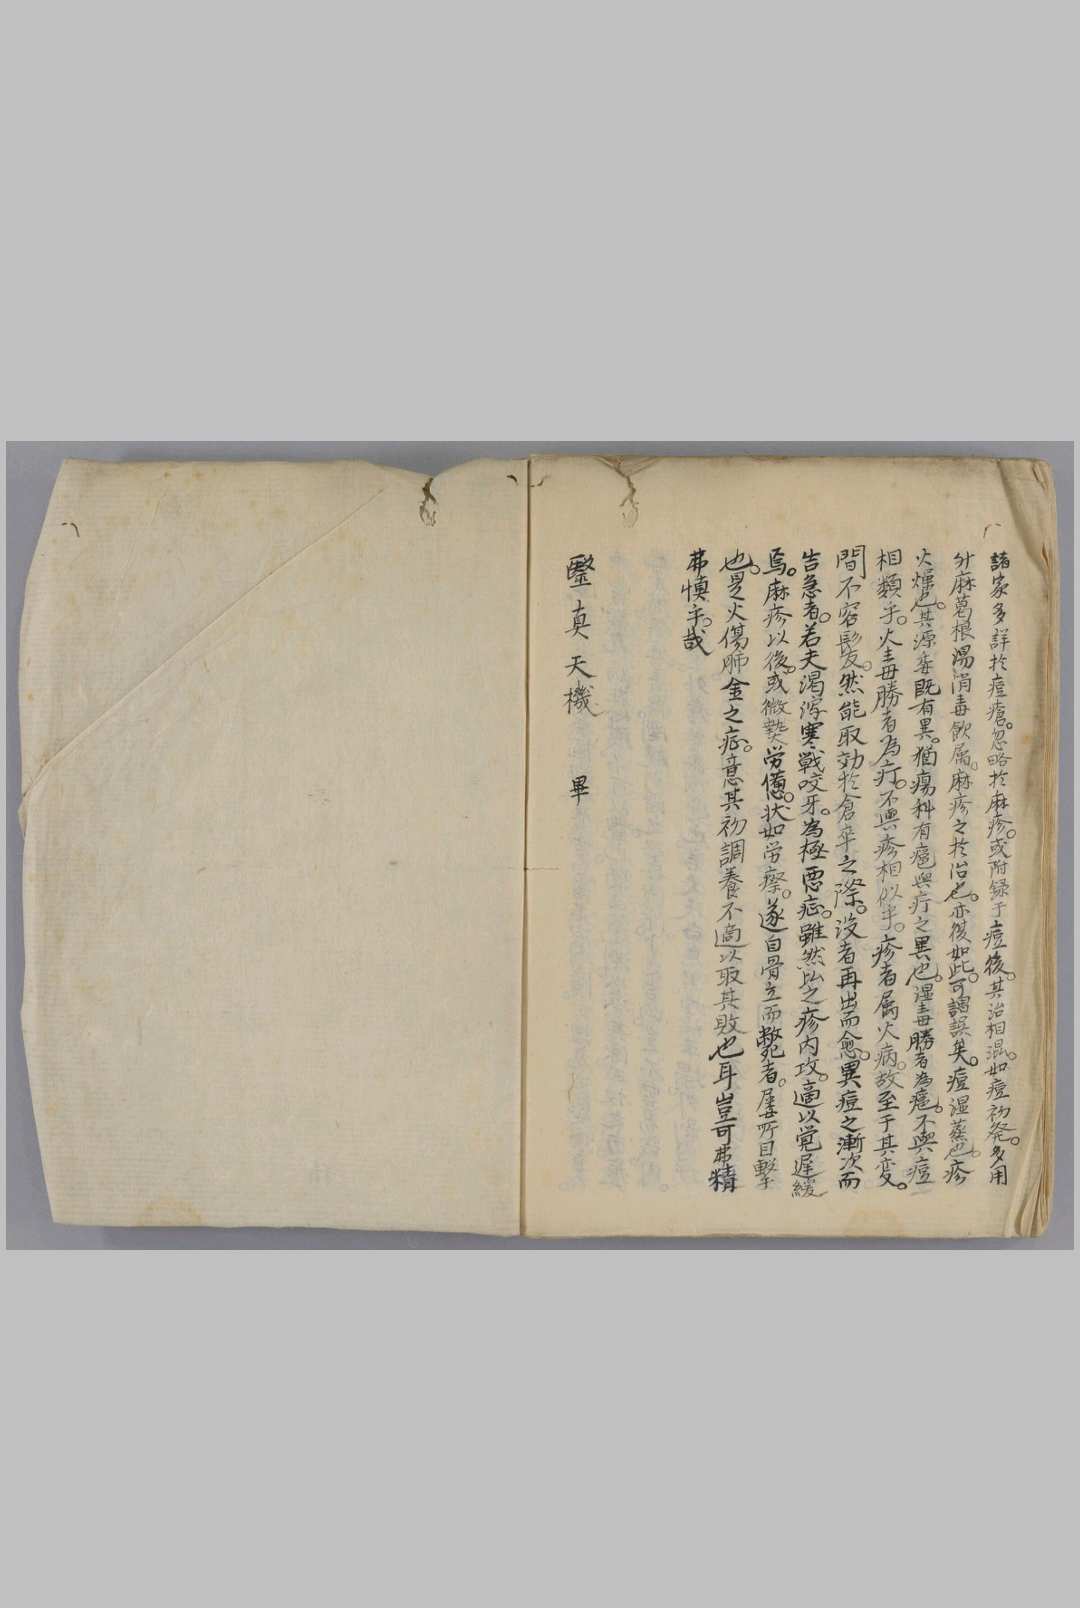 諸家多詳於痘瘡。忽略於麻疹。或附録于痘後。其治相混。如痘初発。多用
升麻葛根湯消毒飲属。麻疹之於治也。亦復如此。可謂誤矣。痘湿蒸也。疹
火燥也。其源委既有異。猶瘍科有疽與疔之異也。湿毒勝者為疽。不與痘
相類乎。火毒勝者為疔。不與疹相似乎。疹者属火病。故至于其変。
間不容髪。然能取効於倉卒之際。没者再出而愈。異痘之漸次而
告急者。若夫渇瀉寒戦咬牙。為極悪症。雖然以之疹内攻。適以覚遅緩
焉。麻疹以後。或微熱労憊。状如労瘵。遂白骨立而斃者。屡所目撃
也。是火傷肺金之症。意其初調養不適以取其敗也耳豈可弗精
弗慎乎。哉
醫真天機 畢